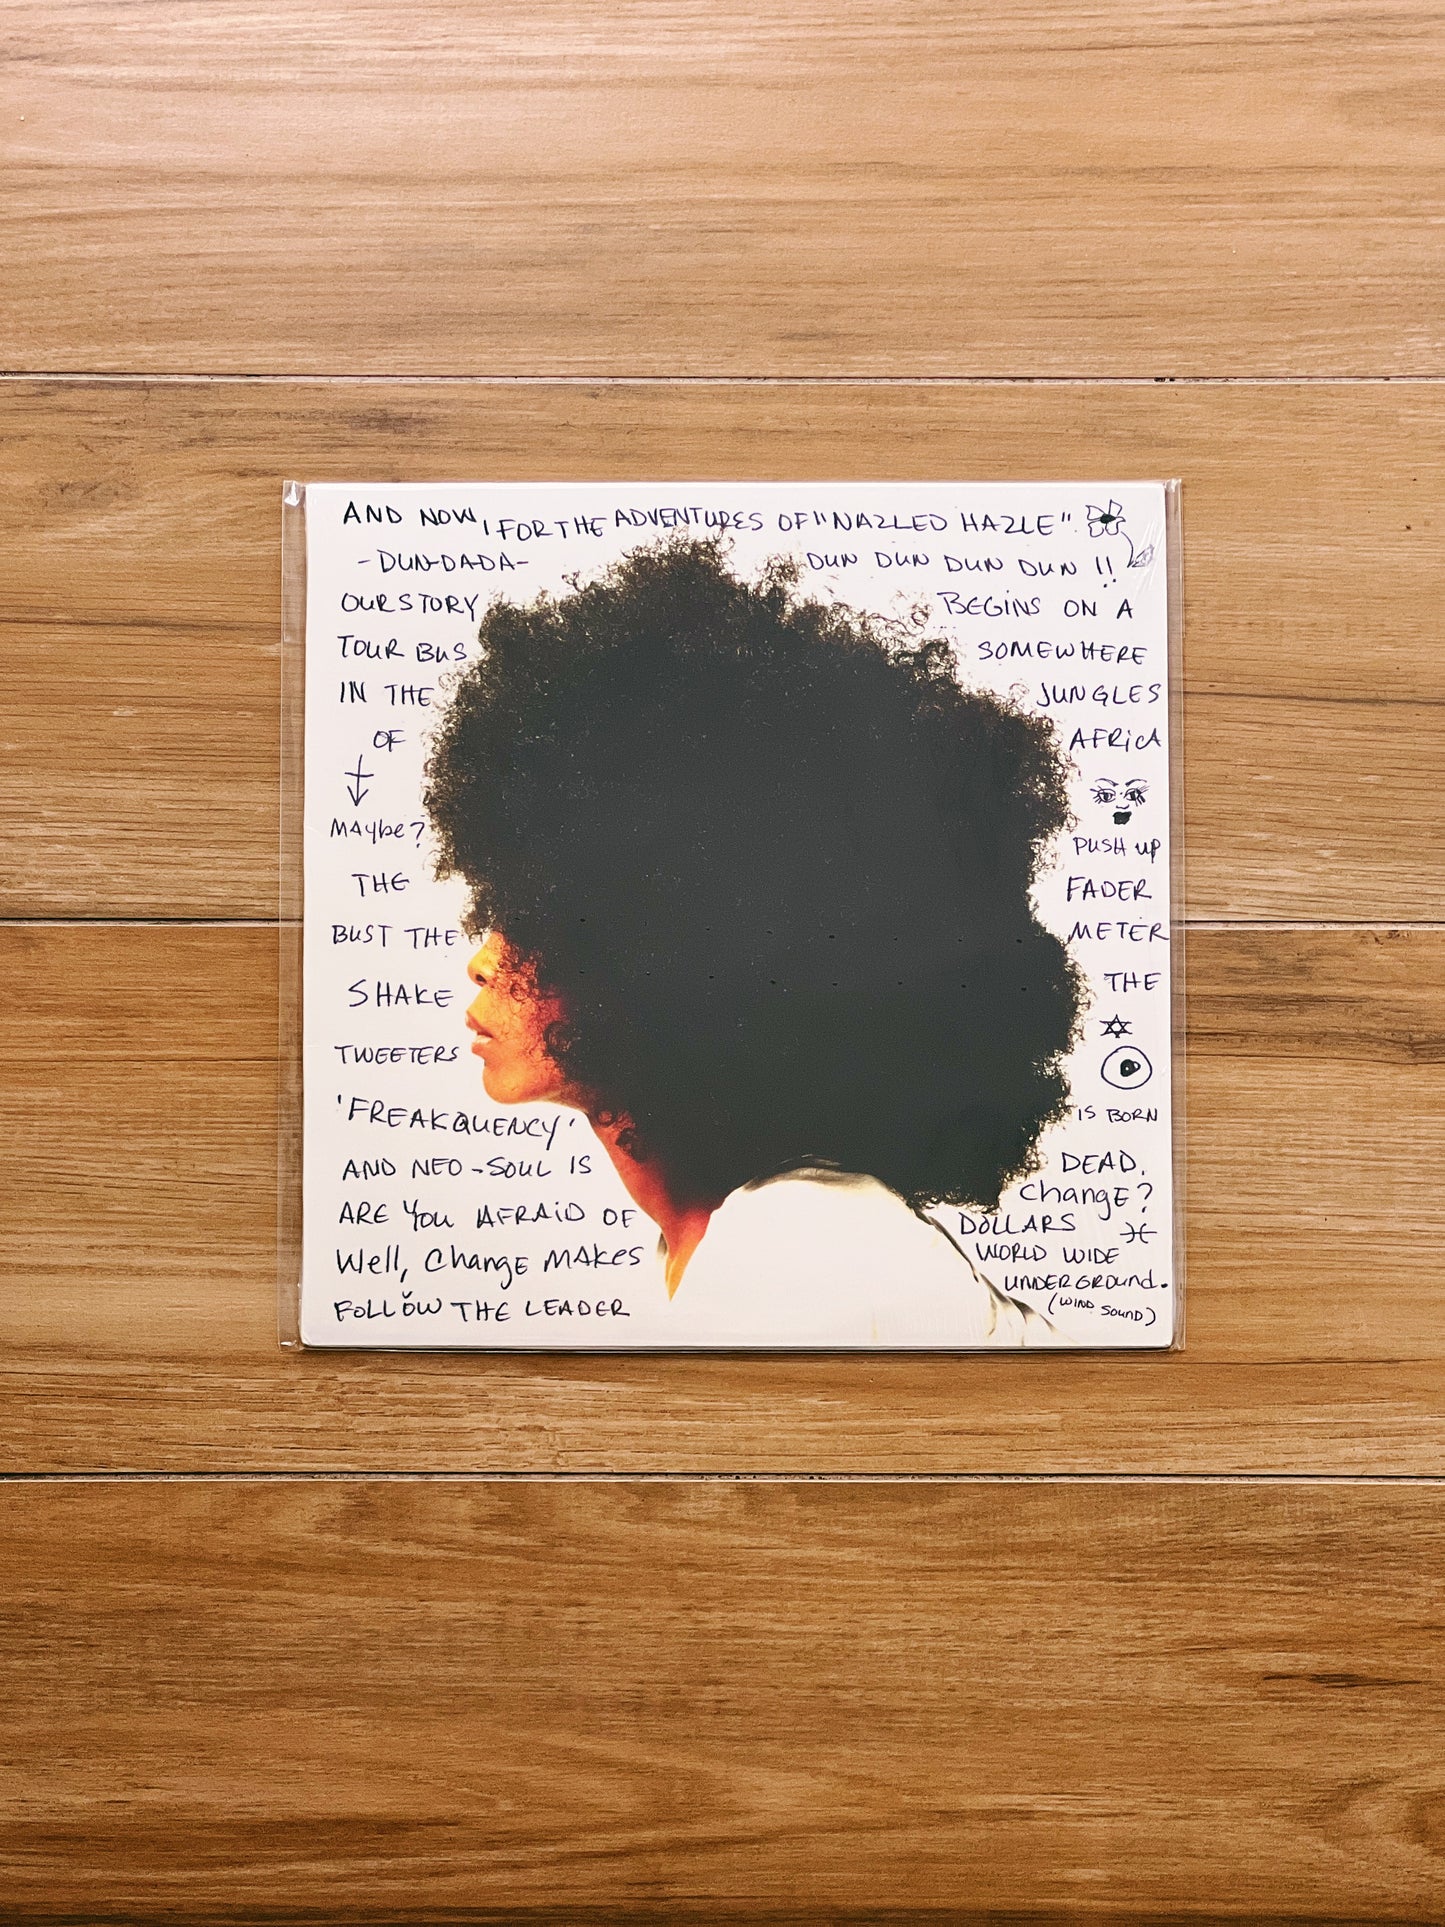 AND NOW, FOR THE ADVENTURES OF "NAZLED HAZLE"
-DUN-DA-DA- DUN DUN DUN DUN DUN !!
OUR STORY BEGINS ON A
TOUR BUS SOMEWHERE
IN THE JUNGLES
OF AFRICA
MAYbe? PUSH UP
THE FADER
BUST THE METER
SHAKE THE
TWEETERS
'FREAKQUENCY' IS BORN
AND NEO-SOUL IS DEAD.
ARE YOU AFRAID OF ChangE?
Well, ChangE MAKES DOLLARS
FOLLOW THE LEADER WORLD WIDE
UNDERGROUNd.
(WIND SOUND)